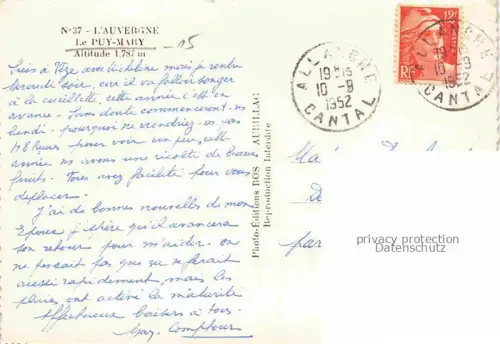 N° 37 - L'AUVERGNE
Le PUY-MARY
Altitude 1.787 m
-15
Suis à Vèze avec Micheline mais je rentre
samedi soir, car il va falloir songer
à la cueillette, cette année c'est en
avance. Sans doute commencerons-ns
lundi - pourquoi ne viendriez-vs pas
48 heures pour voir un peu, cette
année ns avons une récolte de beaux
fruits. Vous avez facilité pour vous
déplacer.
J'ai de bonnes nouvelles de mon
Epoux j'espère qu'il avancera
son retour pour m'aider - on
ne pensait pas que ça se ferait
aussi rapidement, mais les
pluies ont activé la maturité
Affectueux baisers à tous.
Comptour
Photo-Editions BOS AURILLAC
Reproduction Interdite
ALLANCHE
19H15
10-9
1952
CANTAL
RF
ALLANCHE
10-9
1952
CANTAL
par
privacy protection
Datenschutz